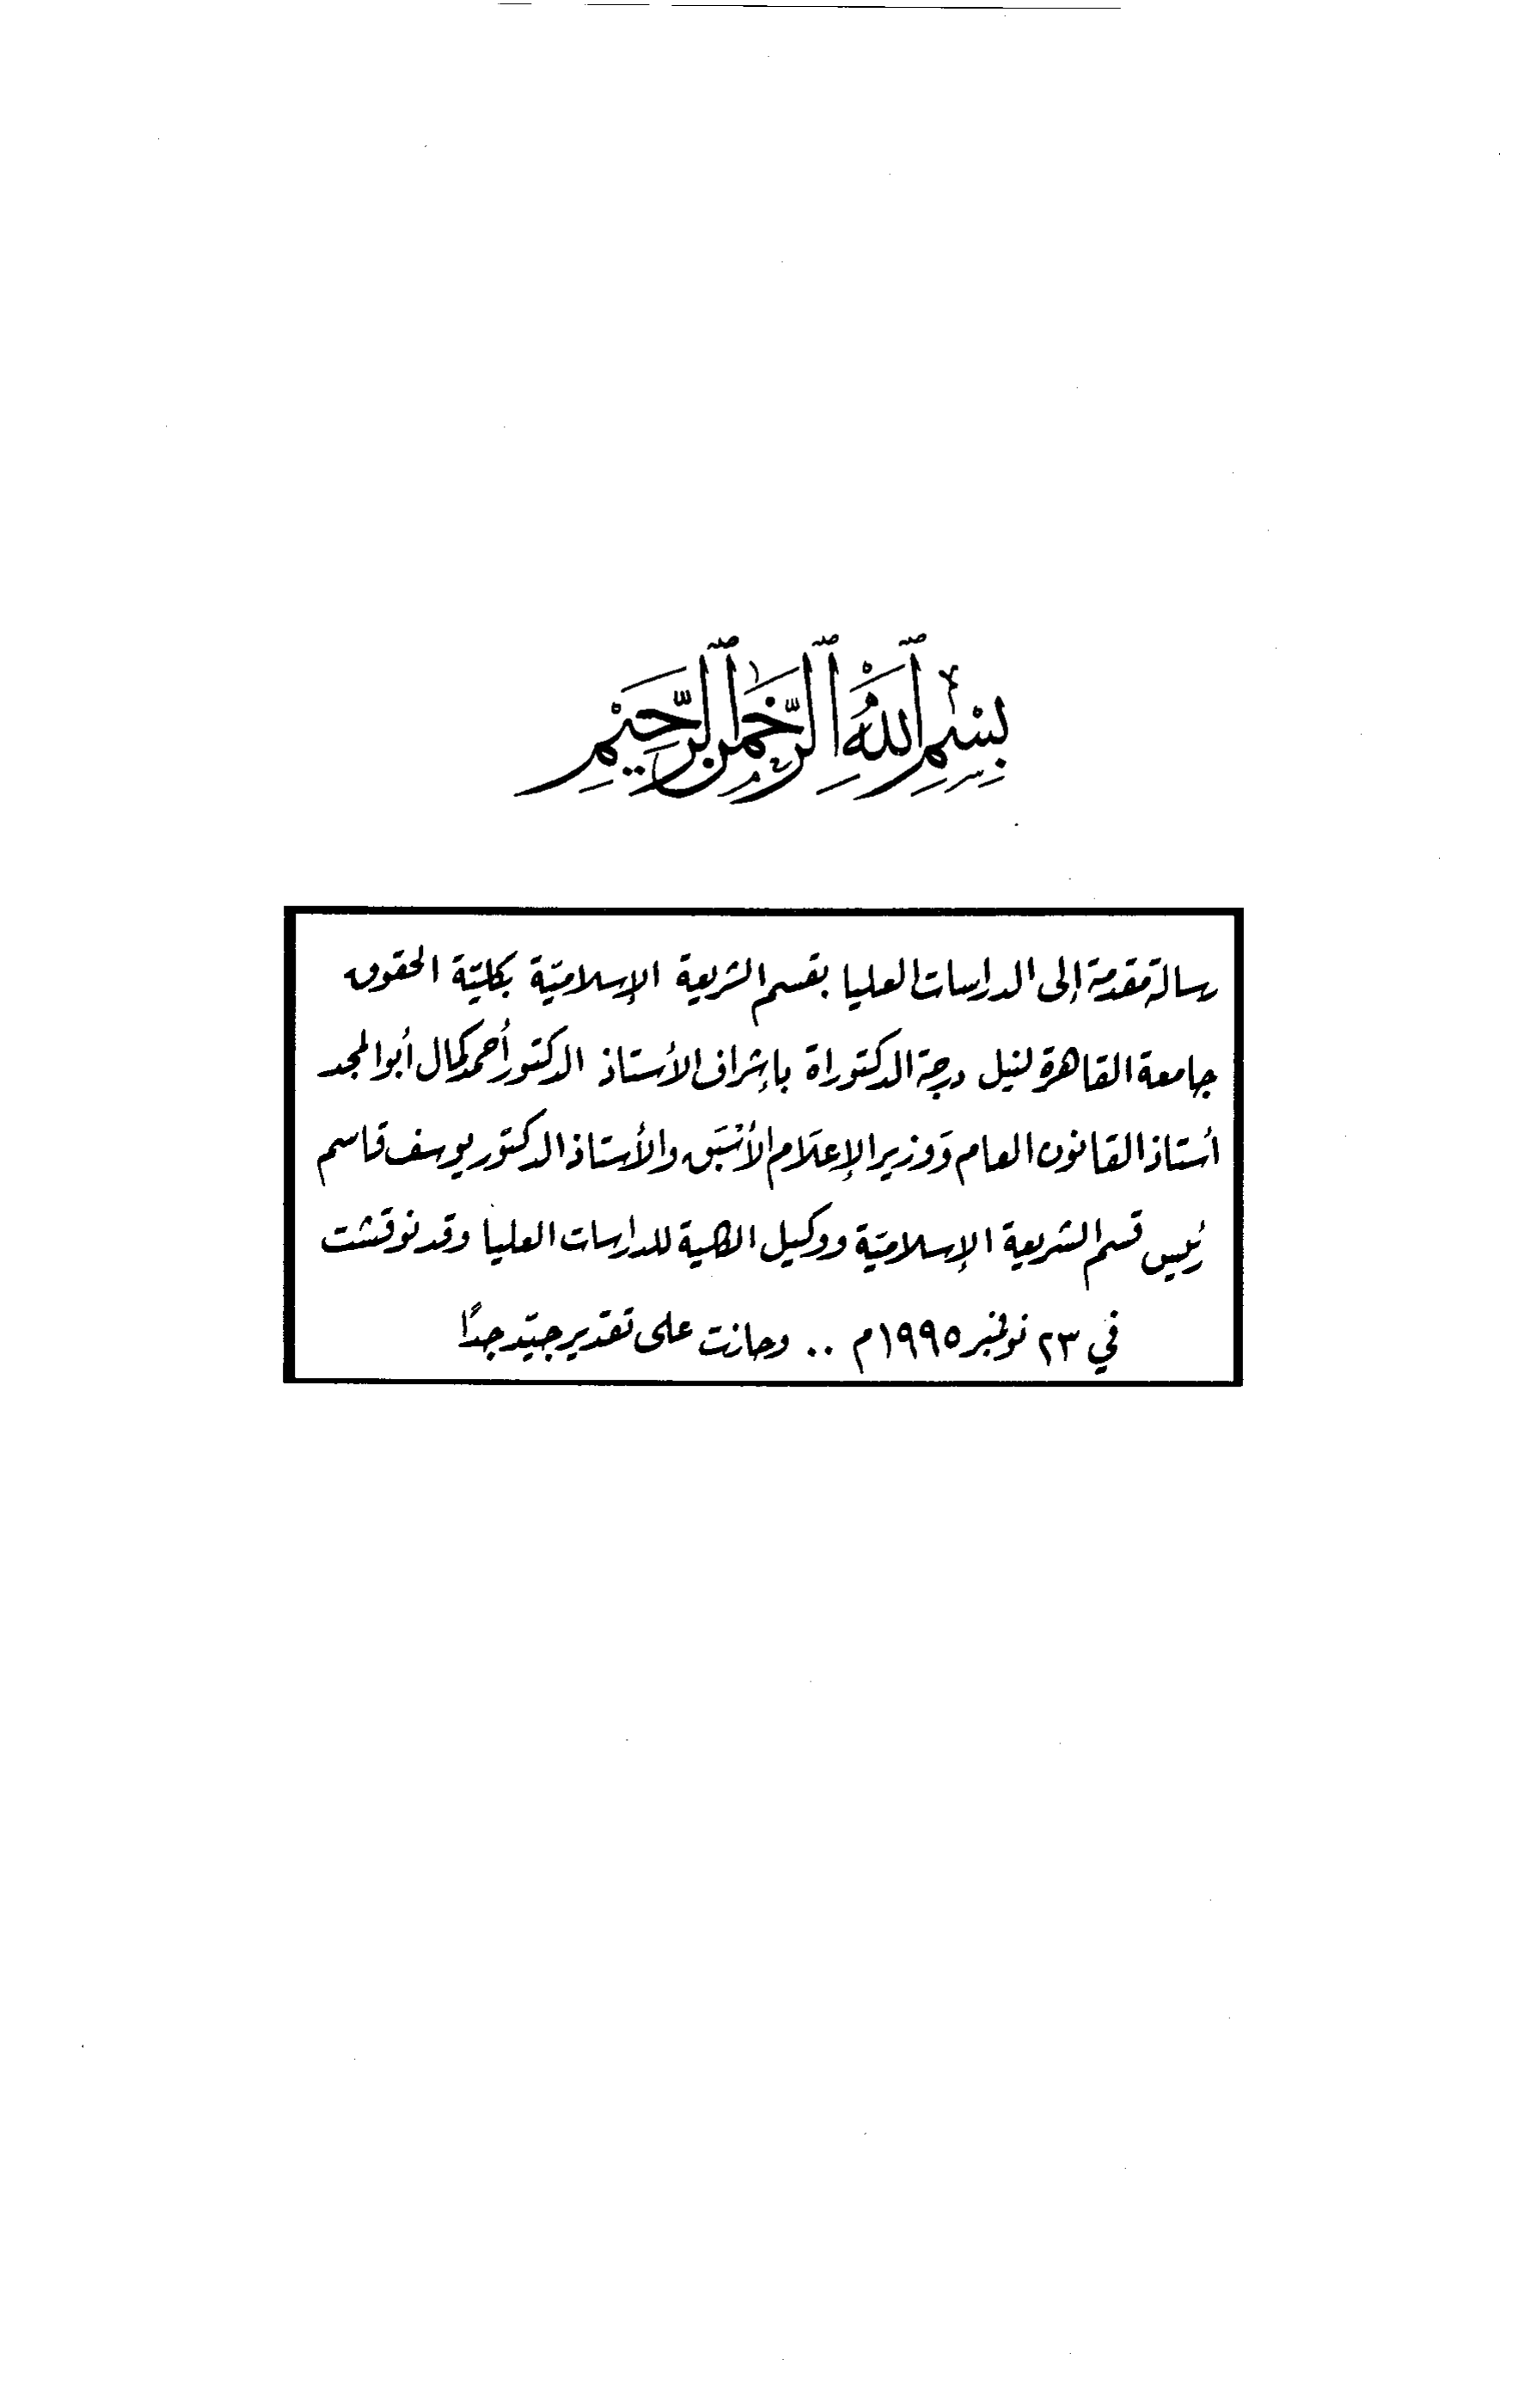 بسم الله الرحمن الرحيم
رسالة مقدمة إلى الدراسات العليا بقسم الشريعة الإسلاميّة بكليّة الحقوق
جامعة القاهرة لنيل درجة الدكتوراة بإشراف الأستاذ الدكتور أحمد كمال أبو المجد
أستاذ القانون العام ووزير الإعلام الأسبق والأستاذ الدكتور يوسف قاسم
رئيس قسم الشريعة الإسلاميّة ووكيل الكلية للدراسات العليا وقد نوقشت
في ٢٣ نوفمبر ١٩٩٥م .. وحازت على تقدير جيّد جدًا